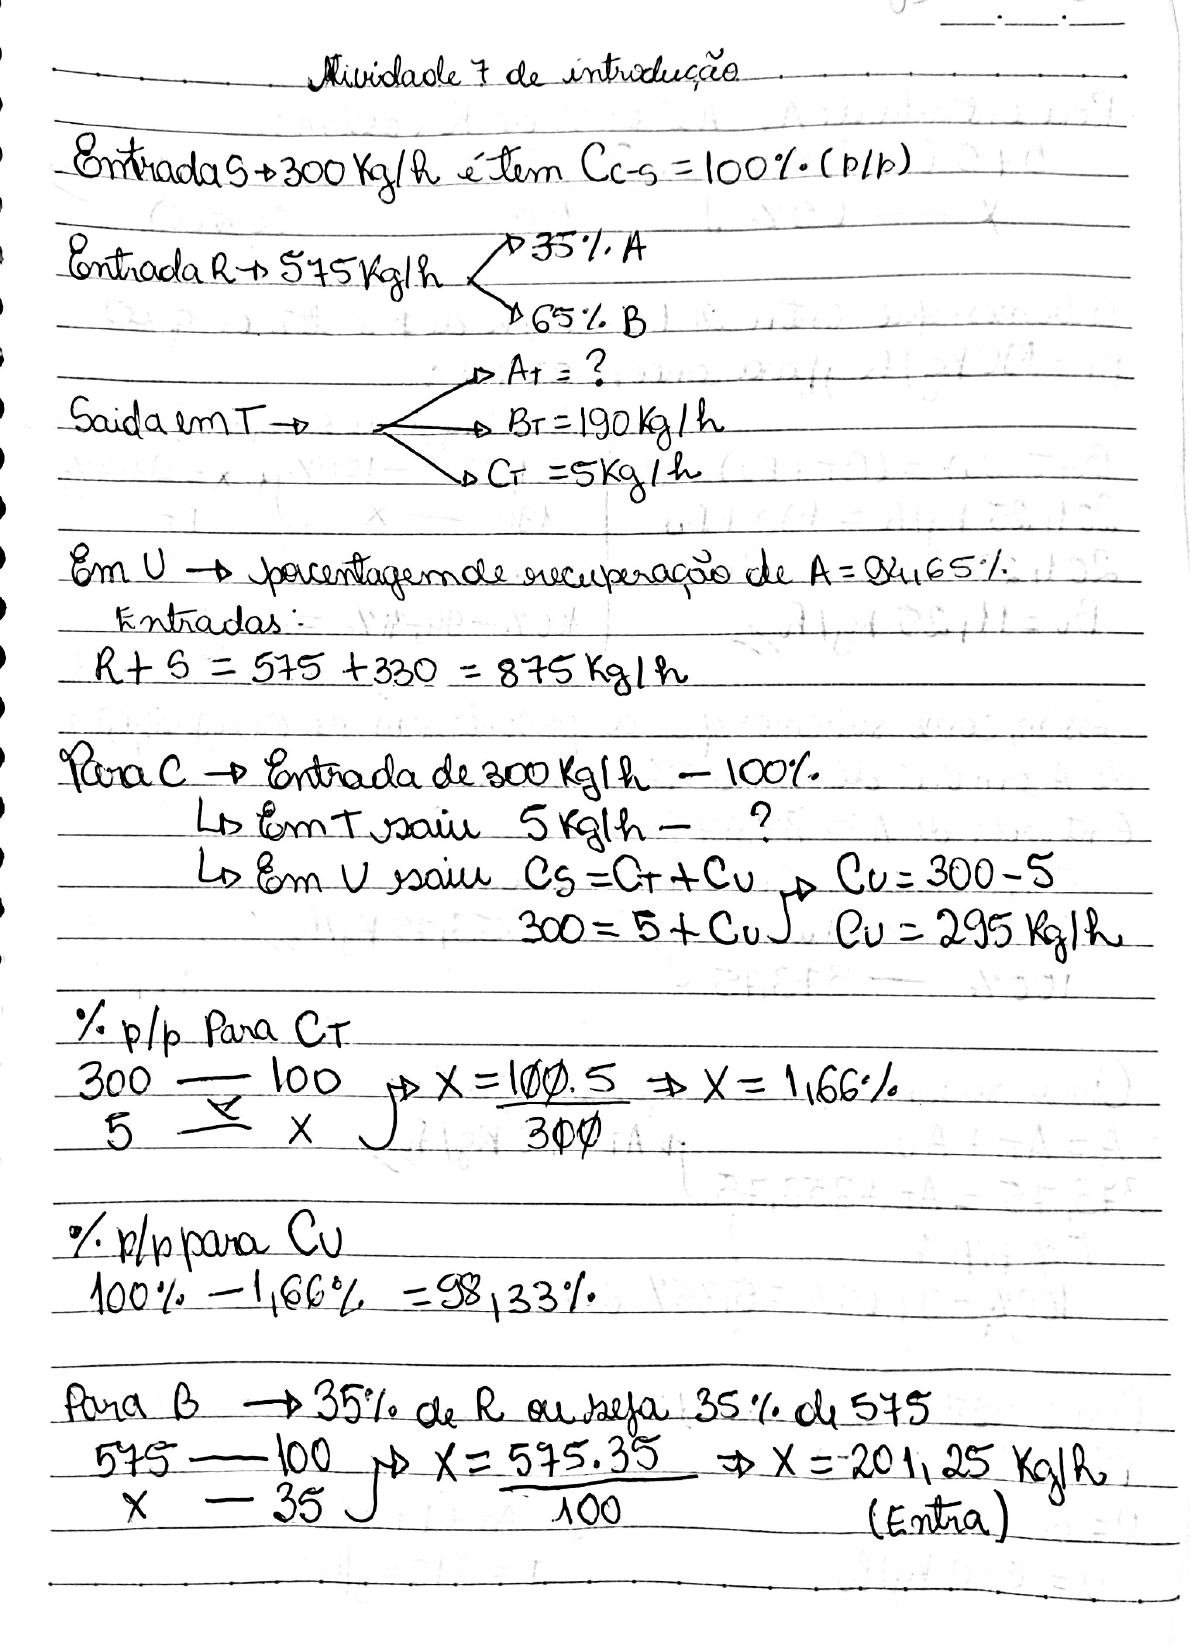 Atividade 7 de introdução
Entrada S → 300 Kg/h é tem Cc-s = 100% (p/p)
Entrada R → 575 Kg/h → 35% A
→ 65% B
→ AT = ?
Saida em T → → BT = 190 Kg/h
→ CT = 5 Kg/h
Em U → porcentagem de recuperação de A = 94,65%
Entradas:
R + S = 575 + 330 = 875 Kg/h
Para C → Entrada de 300 Kg/h – 100%
↳ Em T saiu 5 Kg/h – ?
↳ Em U saiu CS = CT + CU → CU = 300 - 5
300 = 5 + CU CU = 295 Kg/h
% p/p Para CT
300 — 100 → X = 100.5 ⇒ X = 1,66%
5 — X 300
% p/p para CU
100% - 1,66% = 98,33%
Para B → 35% de R ou seja 35% de 575
575 — 100 → X = 575.35 ⇒ X = 201,25 Kg/h
X — 35 100 (Entra)